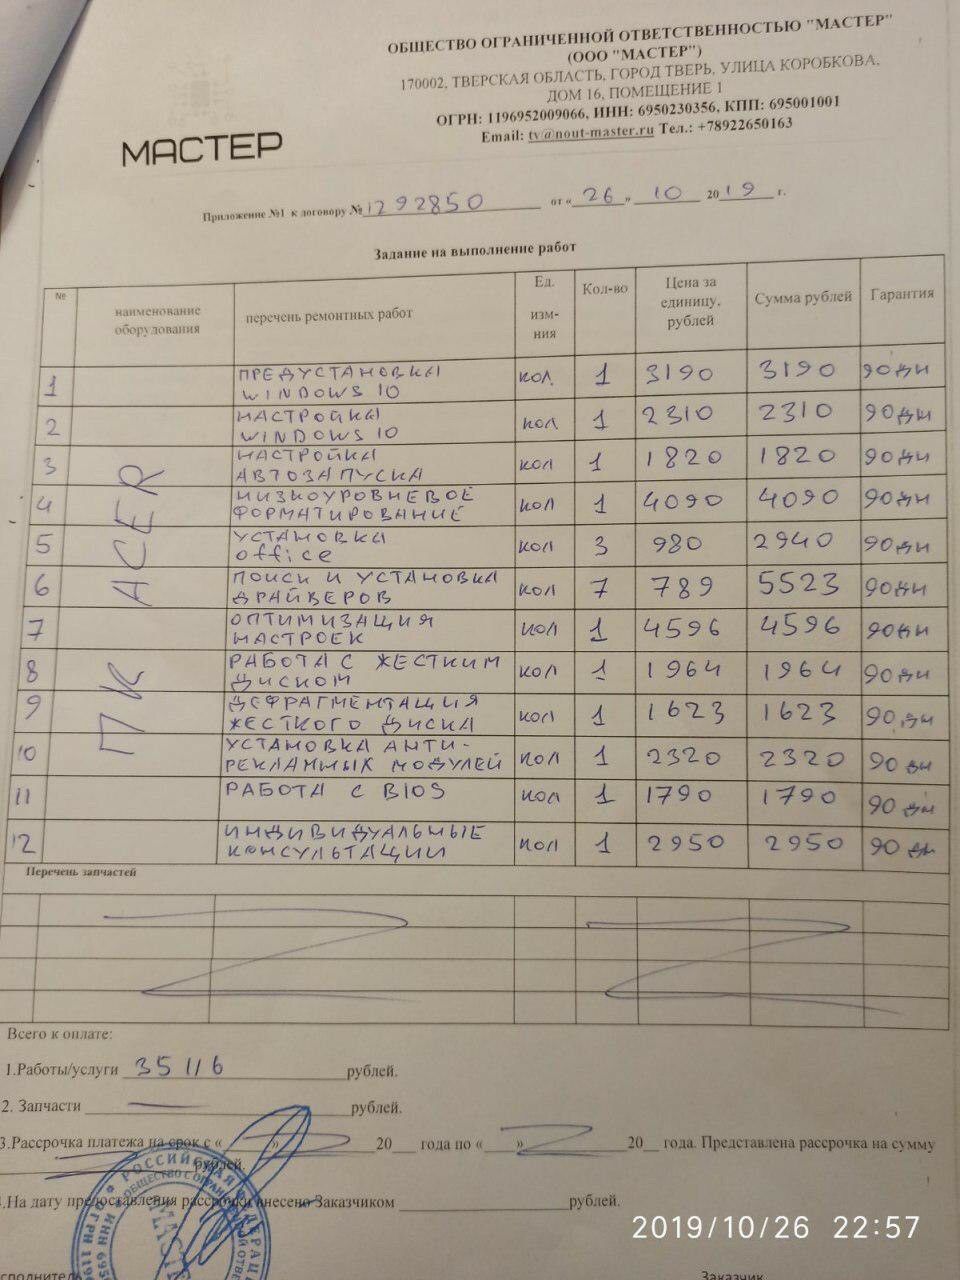 ОБЩЕСТВО ОГРАНИЧЕННОЙ ОТВЕТСТВЕННОСТЬЮ "МАСТЕР"
(ООО "МАСТЕР")
170002, ТВЕРСКАЯ ОБЛАСТЬ, ГОРОД ТВЕРЬ, УЛИЦА КОРОБКОВА,
ДОМ 16, ПОМЕЩЕНИЕ 1
ОГРН: 1196952009066, ИНН: 6950230356, КПП: 695001001
Email: tv@nout-master.ru Тел.: +78922650163
МАСТЕР
Приложение №1 к договору № 1292850 от « 26 » 10 2019 г.
Задание на выполнение работ
№ наименование оборудования перечень ремонтных работ Ед. изм-ния Кол-во Цена за единицу, рублей Сумма рублей Гарантия
ПК ACER
1 ПРЕДУСТАНОВКА WINDOWS 10 кол 1 3190 3190 90 дн
2 НАСТРОЙКА WINDOWS 10 кол 1 2310 2310 90 дн
3 НАСТРОЙКА АВТОЗАПУСКА кол 1 1820 1820 90 дн
4 НИЗКОУРОВНЕВОЕ ФОРМАТИРОВАНИЕ кол 1 4090 4090 90 дн
5 УСТАНОВКА office кол 3 980 2940 90 дн
6 ПОИСК И УСТАНОВКА ДРАЙВЕРОВ кол 7 789 5523 90 дн
7 ОПТИМИЗАЦИЯ НАСТРОЕК кол 1 4596 4596 90 дн
8 РАБОТА С ЖЕСТКИМ ДИСКОМ кол 1 1964 1964 90 дн
9 ДЕФРАГМЕНТАЦИЯ ЖЕСТКОГО ДИСКА кол 1 1623 1623 90 дн
10 УСТАНОВКА АНТИ-РЕКЛАМНЫХ МОДУЛЕЙ кол 1 2320 2320 90 дн
11 РАБОТА С BIOS кол 1 1790 1790 90 дн
12 ИНДИВИДУАЛЬНЫЕ КОНСУЛЬТАЦИИ кол 1 2950 2950 90 дн
Перечень запчастей
Всего к оплате:
1.Работы/услуги 35116 рублей.
2. Запчасти рублей.
3.Рассрочка платежа на срок с « » 20 года по « » 20 года. Представлена рассрочка на сумму
рублей.
4.На дату предоставления рассрочки внесено Заказчиком рублей.
2019/10/26 22:57
Заказчик